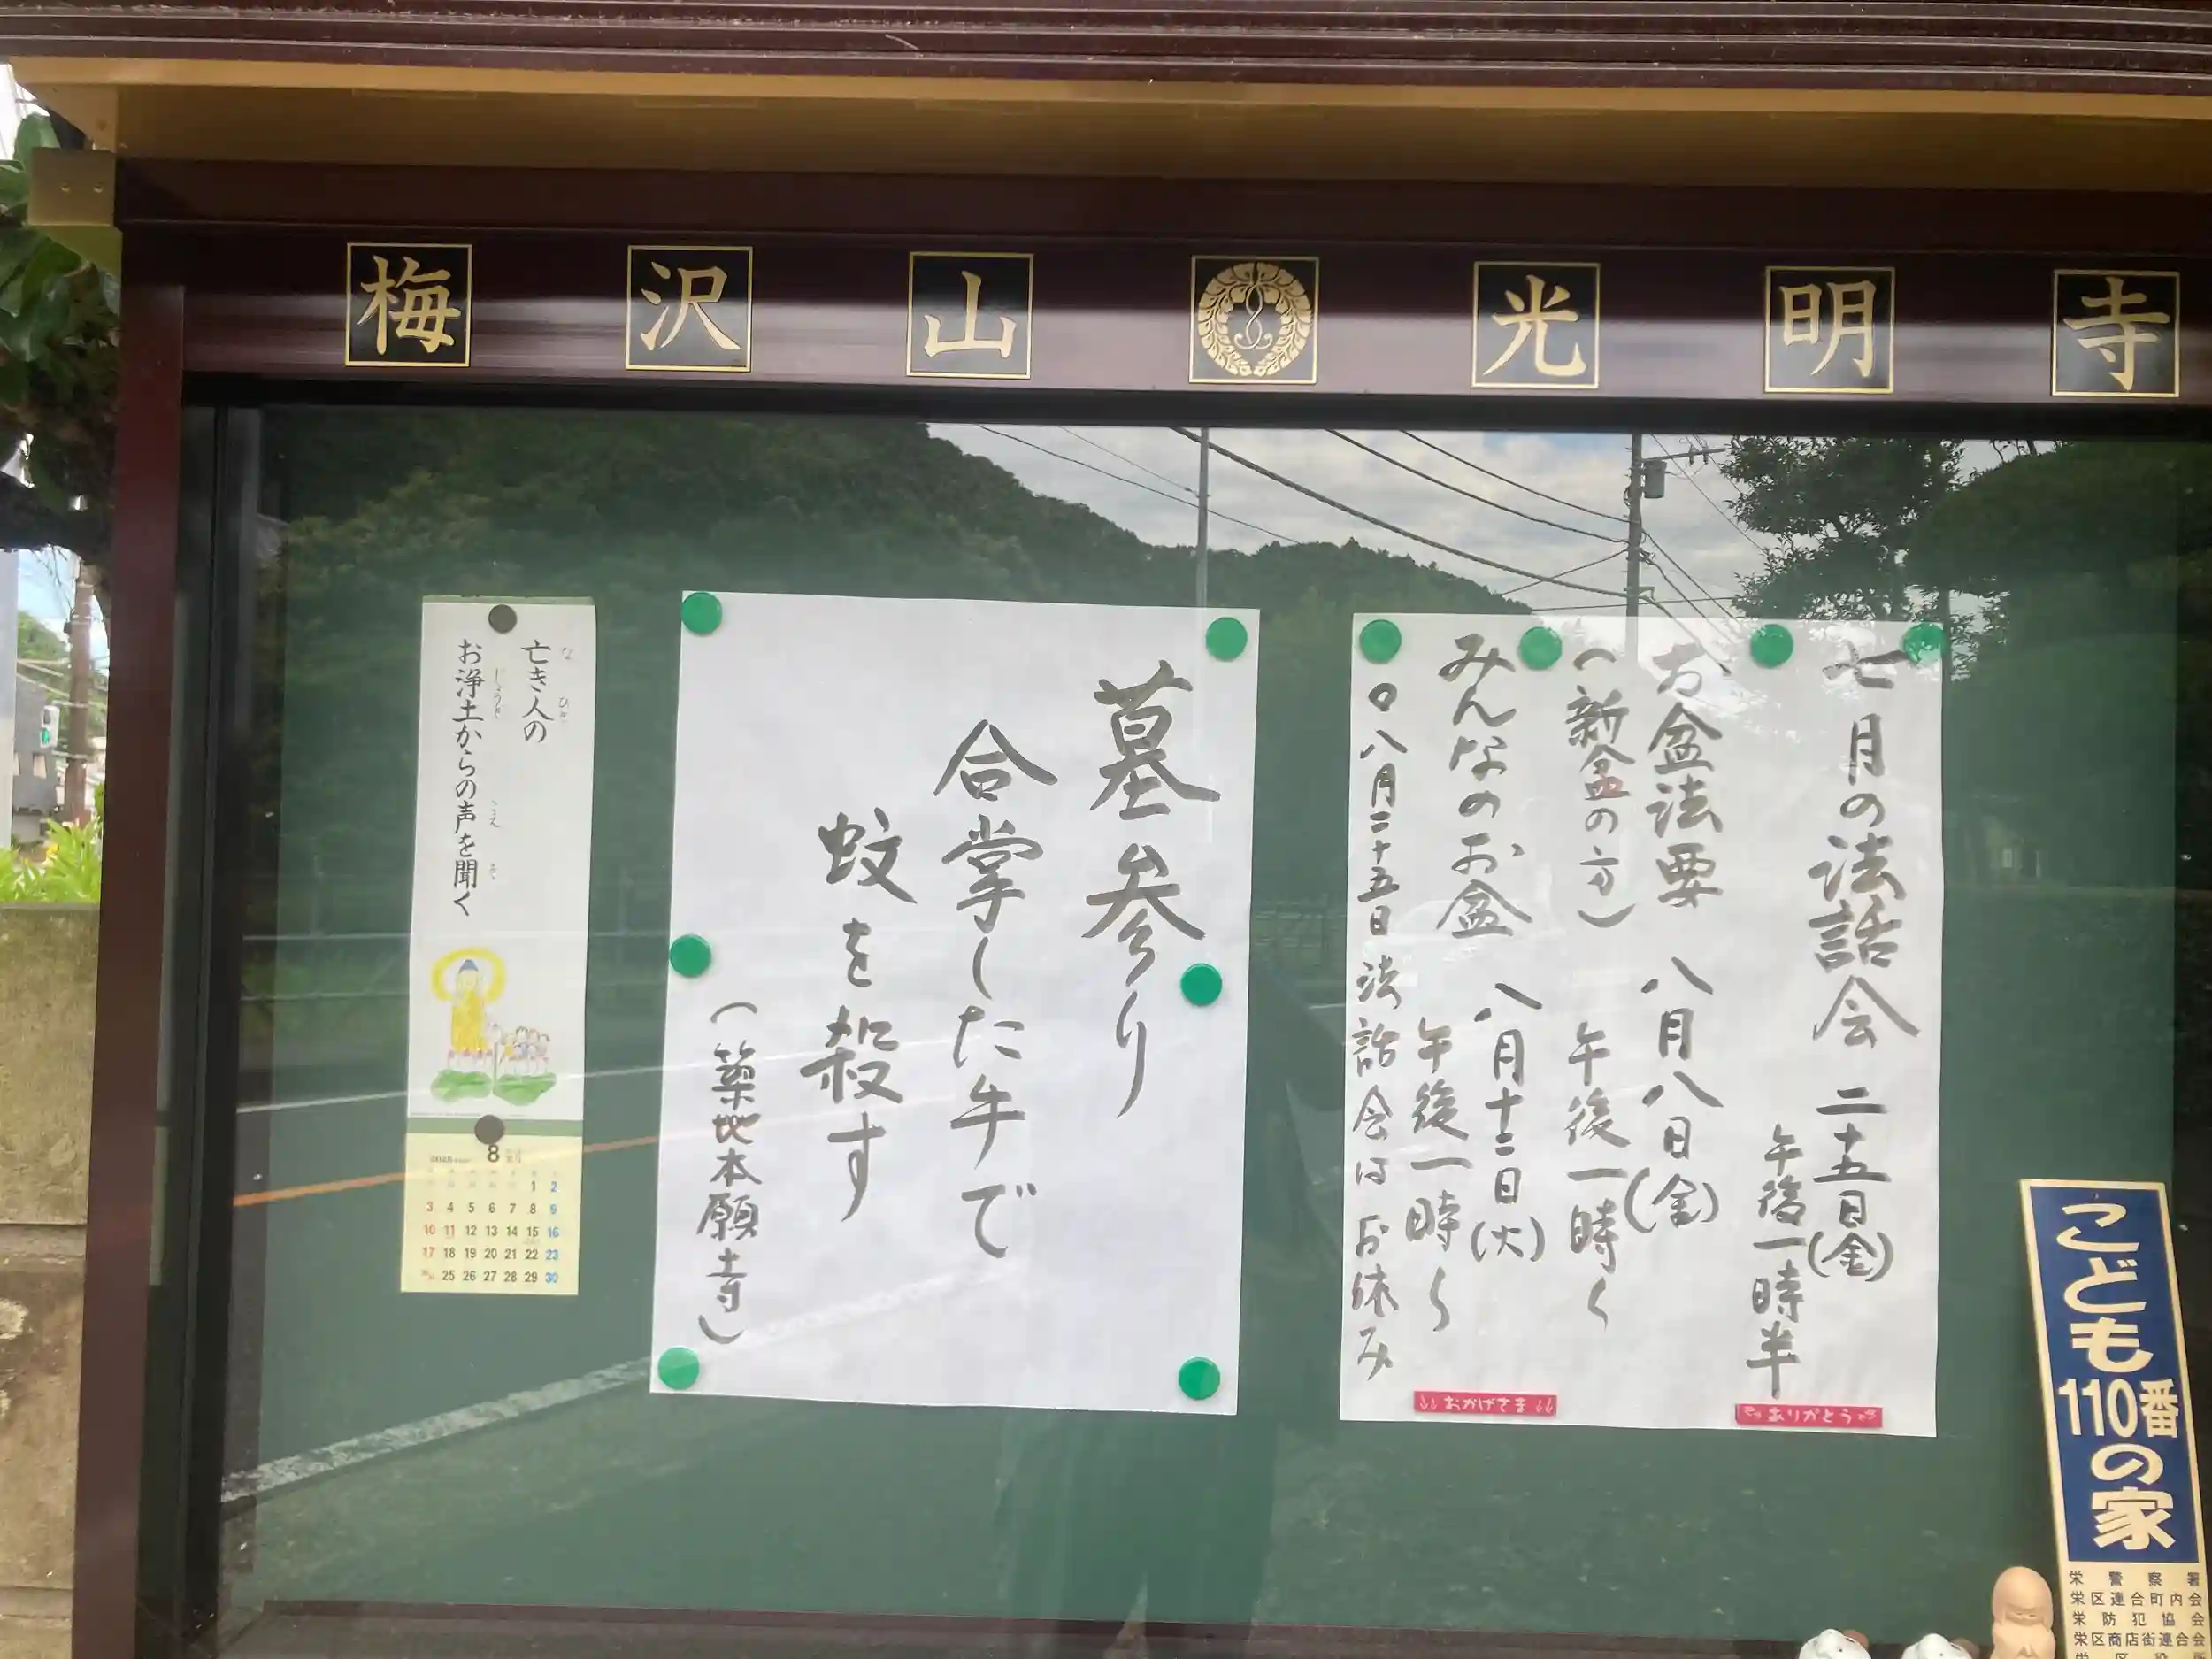 梅沢山光明寺
七月の法話会 二十五日(金)
午後一時半
お盆法要 八月八日(金)
(新盆の方) 午後一時〜
みんなのお盆 八月十二日(火)
午後一時〜
○八月二十五日法話会はお休み
おかげさま
ありがとう
墓参り
合掌した手で
蚊を殺す
(築地本願寺)
亡き人の
な ひと
お浄土からの声を聞く
じょうど こえ き
8
1 2
3 4 5 6 7 8 9
10 11 12 13 14 15 16
17 18 19 20 21 22 23
25 26 27 28 29 30
こども110番の家
栄警察署
栄区連合町内会
栄防犯協会
栄区商店街連合会